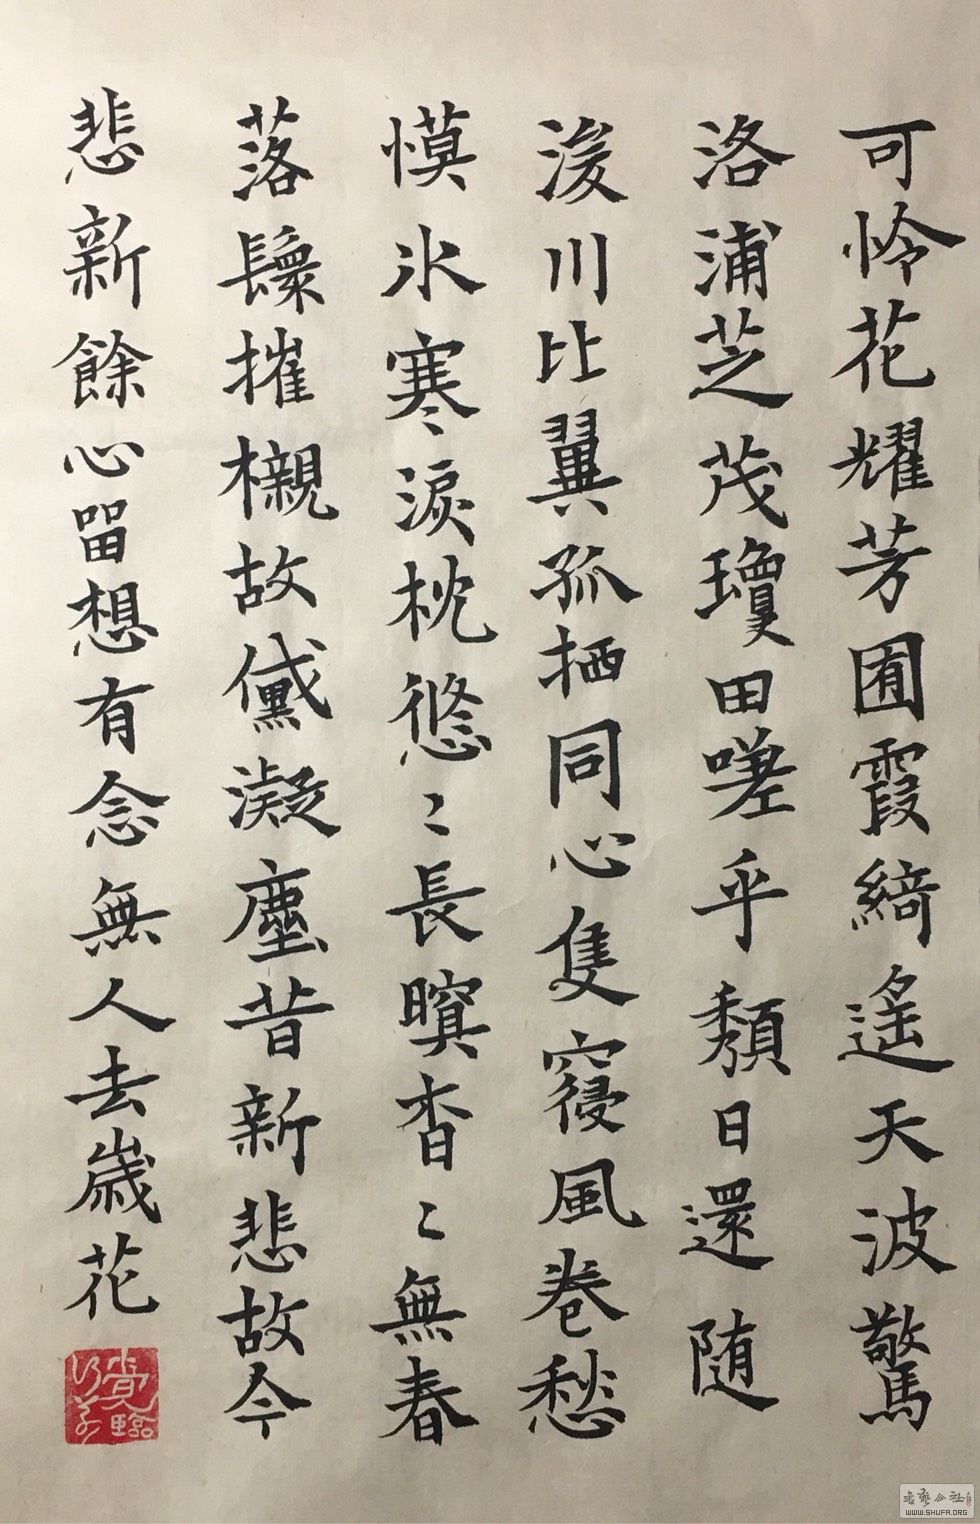 可怜花耀芳囿霞綺遥天波驚
洛浦芝茂瓊田嗟乎頽日還随
浚川比翼孤栖同心隻寑風卷愁
慔氷寒淚枕悠〻長暝杳〻無春
落鬟摧櫬故黛凝塵昔新悲故今
悲新餘心留想有念無人去歲花
覺臨
書艺公社
WWW.SHUFA.ORG